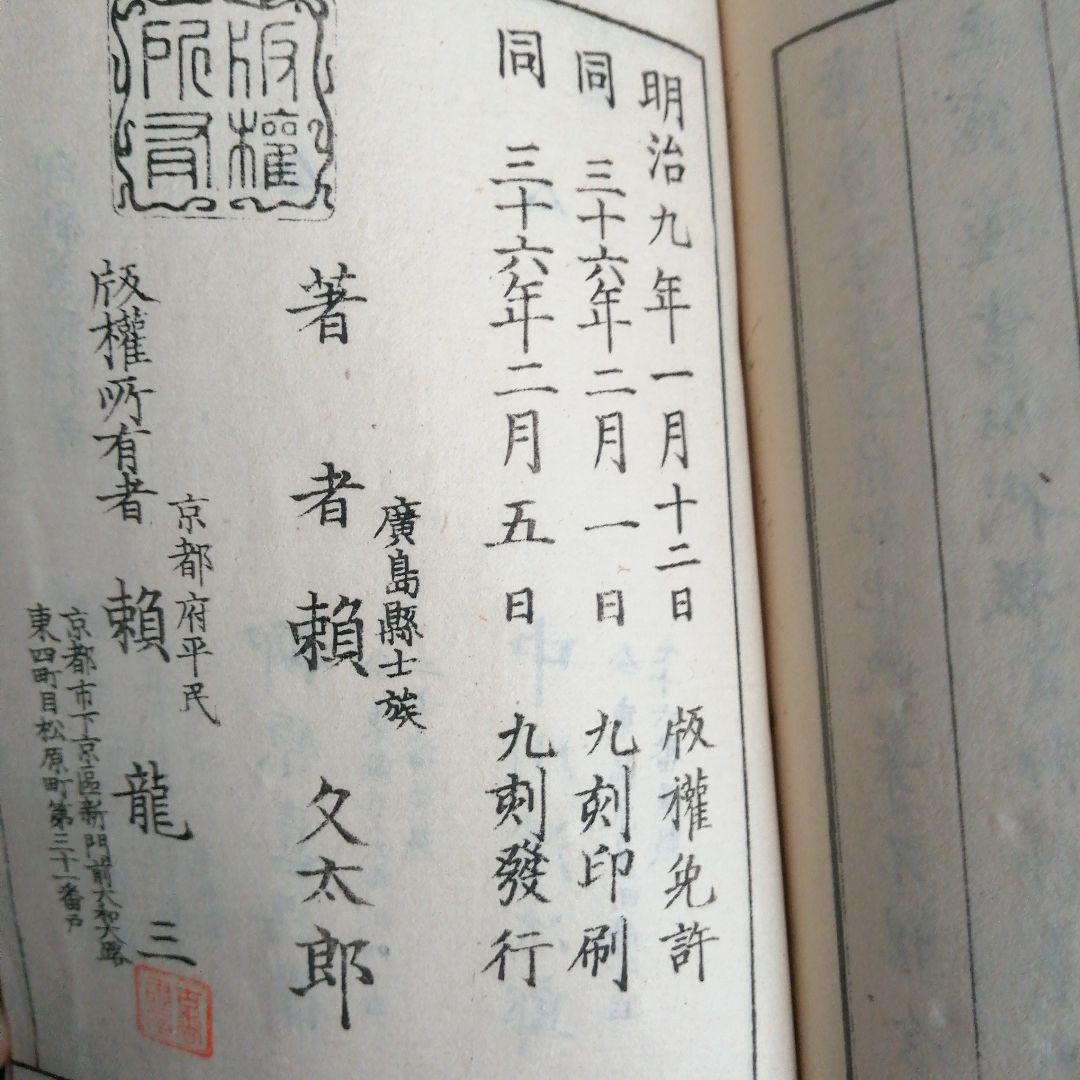 明治九年一月十二日 版權免許
同 三十六年二月一日 九刻印刷
同 三十六年二月五日 九刻發行
廣島縣士族
著者 賴久太郎
版權所有
京都府平民
版權所有者 賴龍三
京都市下京區新門前大和大路
東四町目松原町第三十一番戸